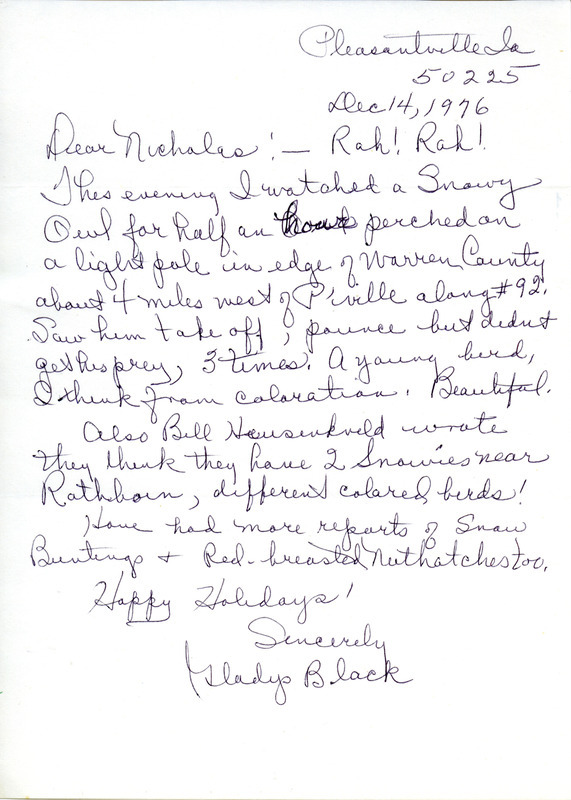 Pleasantville Ia
50225
Dec 14, 1976
Dear Nicholas! — Rah! Rah!
This evening I watched a Snowy
Owl for half an hour perched on
a light pole in edge of Warren County
about 4 miles west of P'ville along #92.
Saw him take off, pounce but didnt
get his prey, 3 times. A young bird,
I think from coloration. Beautiful.
Also Bill Heusinkveld wrote
they think they have 2 Snowies near
Rathbun, different colored birds!
Have had more reports of Snow
Buntings + Red-breasted Nuthatches too.
Happy Holidays!
Sincerely
Gladys Black